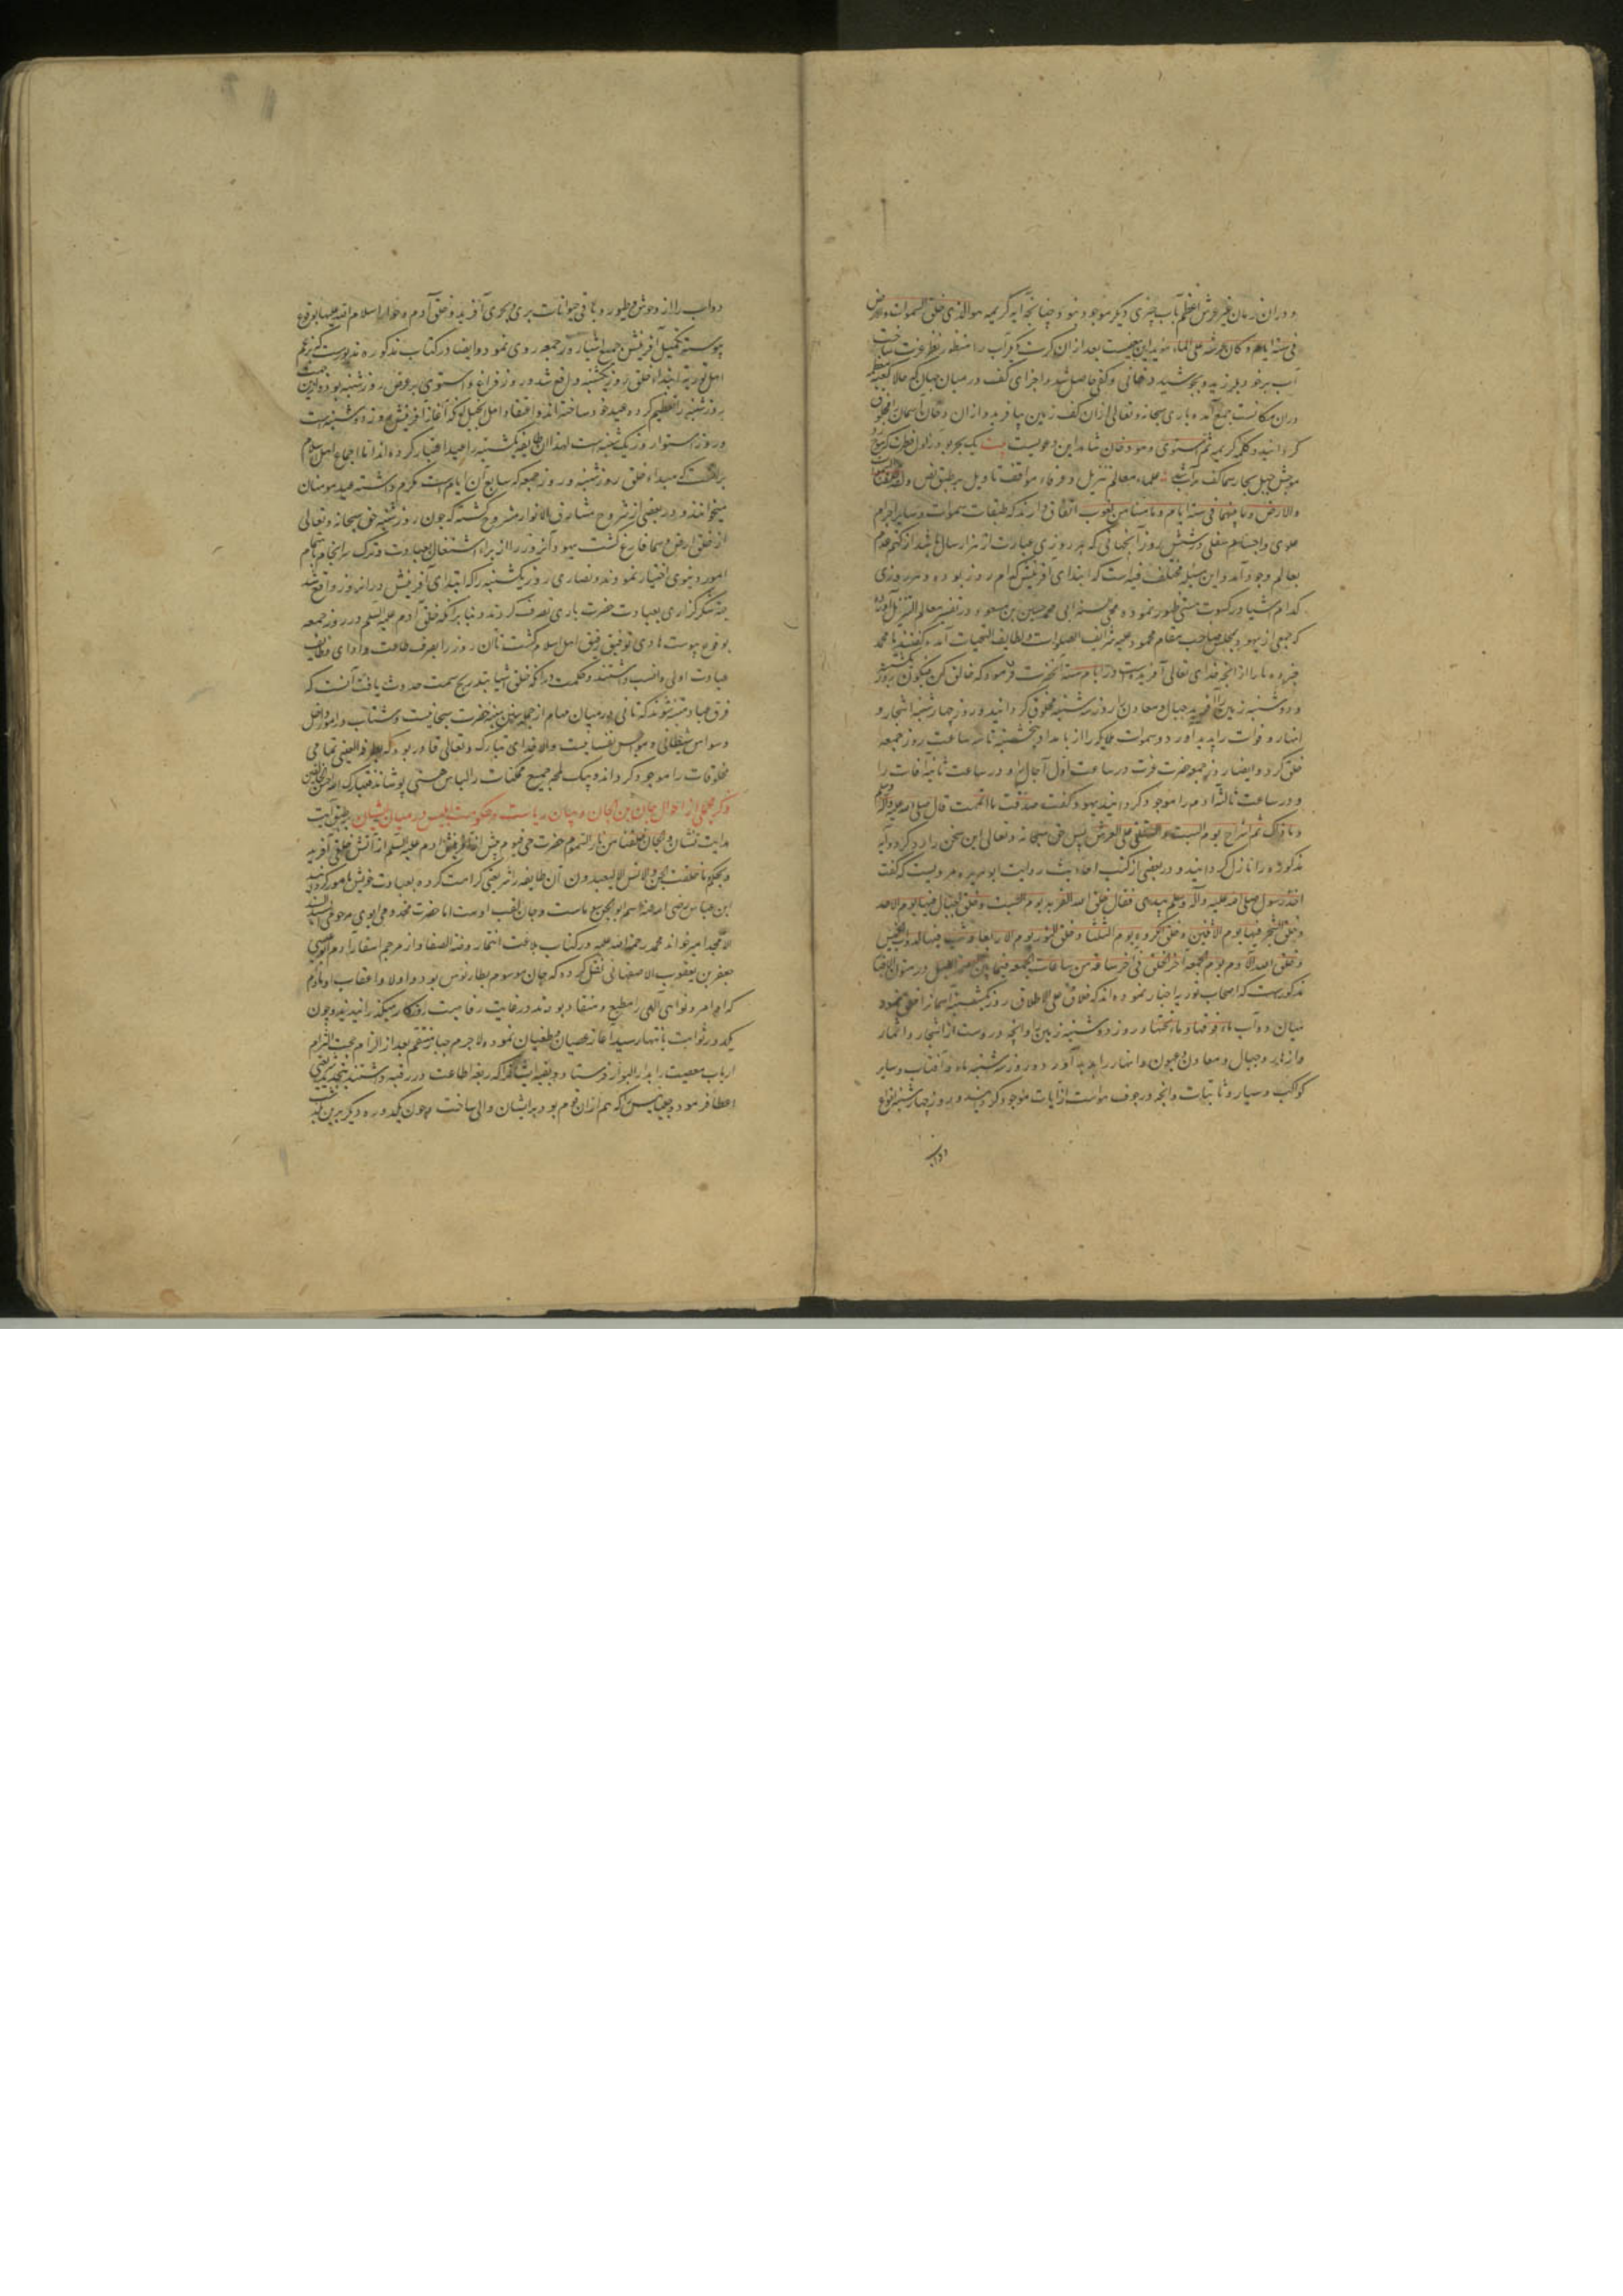 و دران زمان غیر عرش اعظم و آب چیزی دیگر موجود نبود چنانچه آیه کریمه هو الذی خلق السموات والارض
فی ستة ایام و کان عرشه علی الماء مؤید این معنیست بعد ازان کرت دیگر آب را منظور نظر عزت ساخت
آب برخود بلرزید و بجوشید و دخانی و کفی حاصل شد و اجزای کف در میان جهان که حالا کعبه معظمه
دران مکانست جمع آمده باری سبحانه و تعالی ازان کف زمین بیافرید و ازان دخان آسمان مخلوق
گردانید و کلمه کریمه ثم استوی وهو دخان شاهد این دعویست بیت یک بحر بود ز اول فطرت که موج زد
موجش جبل بخار سما کف برآب علماء معالم تنزیل و عرفاء مواقف تاویل بر طبق نص ولقد خلقنا السموات
والارض وما بینهما فی ستة ایام وما مسنا من لغوب اتفاق دارند که طبقات سموات و سایر اجرام
علوی و اجسام سفلی در شش روز آنجهانی که هر روزی عبارت از هزار سال باشد از کتم عدم
بعالم وجود آمد و این مسئله مختلف فیه است که ابتدای آفرینش کدام روز بوده و هر روزی
کدام اشیا در کسوت هستی ظهور نموده محی السنه ابی محمد حسین بن مسعود در تفسیر معالم التنزیل آورده
که جمعی از یهود بمجلس صاحب مقام محمود علیه شرایف الصلوات و لطایف التحیات آمده گفتند یا محمد
خبر ده ما را از آنچه خدای تعالی آفریده است در ایام سته آنحضرت فرمود که خالق کن فیکون روز یکشنبه
و دوشنبه زمین را آفرید جبال و معادن را روز سه شنبه مخلوق گردانید و روز چهارشنبه اشجار و
انهار و قوات را پدید آورد و سموات و ملایکه را از بامداد پنجشنبه تا سه ساعت روز جمعه
خلق کرد و ایضا روز جمعه حضرت عزت در ساعت اول آجال را و در ساعت ثانیه آفات را
و در ساعت ثالثه آدم را موجود گردانید یهود گفت صدقت ان اتممت قال صلی الله علیه وآله وسلم
وما ذاک ثم استراح یوم السبت واستلقی علی العرش پس حق سبحانه و تعالی این سخن را رد کرد و آیه
مذکوره را نازل گردانید و در بعضی از کتب احادیث روایت ابو هریره مرویست که گفت
اخذ رسول صلی الله علیه وآله وسلم بیدی فقال خلق الله التربة یوم السبت وخلق الجبال فیها یوم الاحد
وخلق الشجر فیها یوم الاثنین وخلق المکروه یوم الثلثا وخلق النور یوم الاربعا وبث فیها الدواب یوم الخمیس
وخلق الله آدم یوم الجمعه آخر الخلق فی آخر ساعة من ساعات الجمعه فیما بین العصر الی اللیل
مذکورست که اصحاب توریه اخبار نموده‌اند که خلاق علی الاطلاق روز یکشنبه آسمانرا خلق نمود
میان دو آب ماء فوقها و ماء تحتها و روز دوشنبه زمین را و آنچه دروست از اشجار و اثمار
و ازهار و جبال و معادن و عیون و انهار را پدید آورد و روز سه شنبه ماه و آفتاب و سایر
کواکب و سیار و ثابتات و آنچه در جوف هواست از آیات موجود گردانید و روز چهارشنبه انواع
دواب
دواب را از وحوش و طیور و باقی حیوانات بری و بحری آفرید و خلق آدم و حوا سلام الله علیهما بوقوع
پیوسته تکمیل آفرینش جمیع اشیا روز جمعه روی نمود و ایضا در کتاب مذکوره مذکورست که بزعم
اهل توریه ابتداء خلق روز یکشنبه واقع شد و روز فراغ و استوی بر عرش روز شنبه بود و ازین جهت
روز شنبه را تعظیم کرده عید خود ساخته‌اند و اعتقاد اهل انجیل آنکه آغاز آفرینش روز دوشنبه است
و روز استوا روز یکشنبه است لهذا آن طایفه یکشنبه را عید اعتبار کرده‌اند اما اجماع اهل اسلام
برآنست که مبداء خلق روز شنبه و روز جمعه که سابع آن ایام است مکرم داشته عید مومنان
میخوانند و در بعضی از شروح مشارق الانوار مشروح گشته که چون روز شنبه حق سبحانه و تعالی
از خلق ارض و سما فارغ گشت یهود آنروز را از برای اشتغال بعبادت و ترک سرانجام مهام
امور دنیوی اختیار نمودند و نصاری روز یکشنبه را که ابتدای آفرینش درانروز واقع شد
جهة شکرگزاری بعبادت حضرت باری تصرف کردند و بنابر آنکه خلق آدم علیه السلم در روز جمعه
بوقوع پیوست هادی توفیق رفیق اهل اسلام گشت تا آن روز را بصرف طاعت و ادای وظایف
عبادت اولی و انسب دانستند و حکمت درآنکه خلق اشیا بتدریج سمت حدوث یافت آنست که
فرق عباد متنبه شوند که تانی در میان مهام از جمله سنن سنیه حضرت سبحانیست و شتاب در امور داخل
وسواس شیطانی و هواجس نفسانیست والا خدای تبارک و تعالی قادر بود که بطرفة العینی تمامی
مخلوقات را موجود گرداند و بیک لمحه جمیع ممکنات را لباس هستی پوشاند فتبارک الله احسن الخالقین
ذکر مجملی از احوال جان بن الجان و بیان ریاست و حکومت ابلیس در میان ایشان بر طبق آیت
هدایت نشان والجان خلقناه من نار السموم حضرت حی قیوم پیش از خلق آدم علیه السلم از آتش خلقی آفرید
و بحکم ما خلقت الجن والانس الا لیعبدون آن طایفه را شریعتی کرامت کرده بعبادت خویش مامور گردانید
ابن عباس رضی الله عنه اسم ابو الجن ... و جان لقب اوست اما حضرت مخدومی ابوی مرحومی
الامجد امیر خواند محمد رحمة الله علیه در کتاب بلاغت انتما روضة الصفا از مترجم اسفار آدم ابو عیسی
جعفر بن یعقوب الاصفهانی نقل کرده که جان موسوم بطارنوس بود و اولاد و اعقاب او مادام
که اوامر و نواهی الهی را مطیع و منقاد بودند در غایت رفاهیت روزگار میگذرانیدند و چون
یکدور ثوابت بانتها رسید آغاز عصیان و طغیان نمودند لاجرم جبار منتقم بعد از الزام حجت التزام
ارباب معصیت را بدار البوار فرستاد و بقیه ایشان را که ربقه اطاعت در رقبه داشتند بتجدید شریعتی
اعطا فرمود و جلیانیس را که هم ازان قوم بود بر ایشان والی ساخت و چون یکدوره دیگر برین